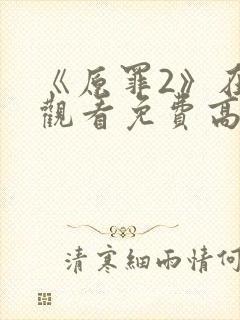 《原罪2》在
觀看免費高
清寒細雨情何